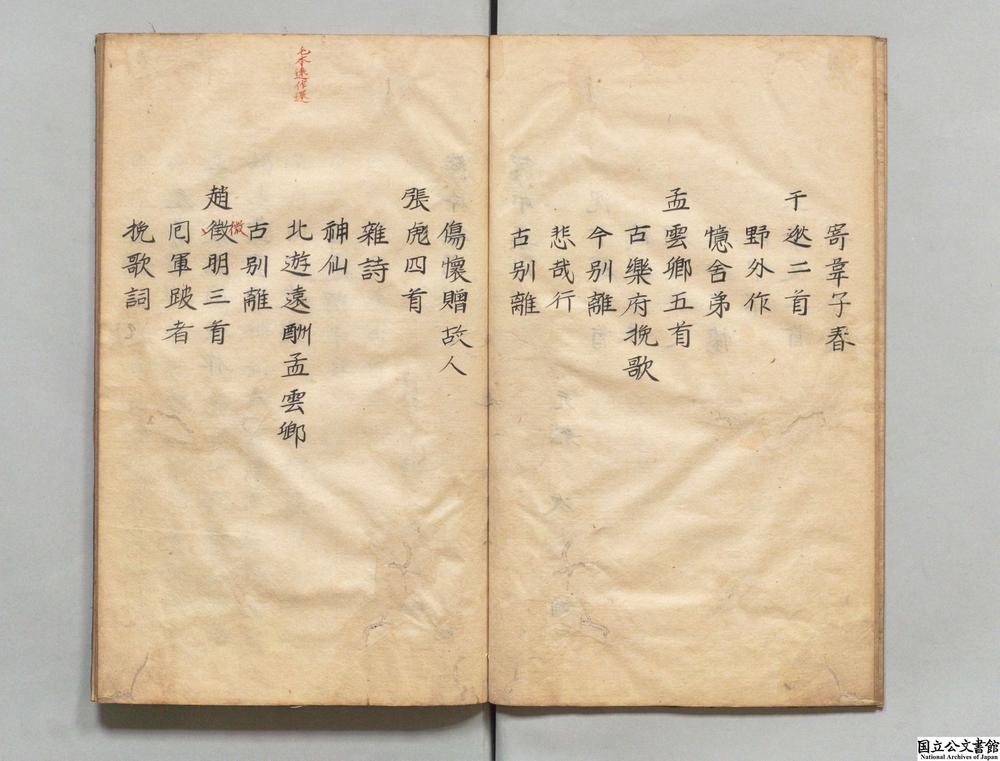 寄韋子春
于逖二首
野外作
憶舍弟
孟雲卿五首
古樂府挽歌
今別離
悲哉行
古別離
傷懷贈故人
張彪四首
雜詩
神仙
北遊遠酬孟雲卿
古別離
趙徴明三首
微
囘軍跛者
挽歌詞
毛本遠作還
国立公文書館
National Archives of Japan